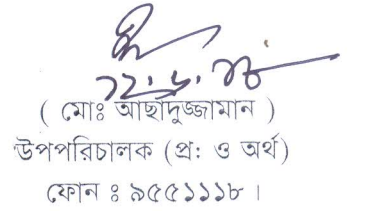 ১২.৬.১৮
( মোঃ আছাদুজ্জামান )
উপপরিচালক (প্র: ও অর্থ)
ফোন ঃ ৯৫৫১১১৮ ।